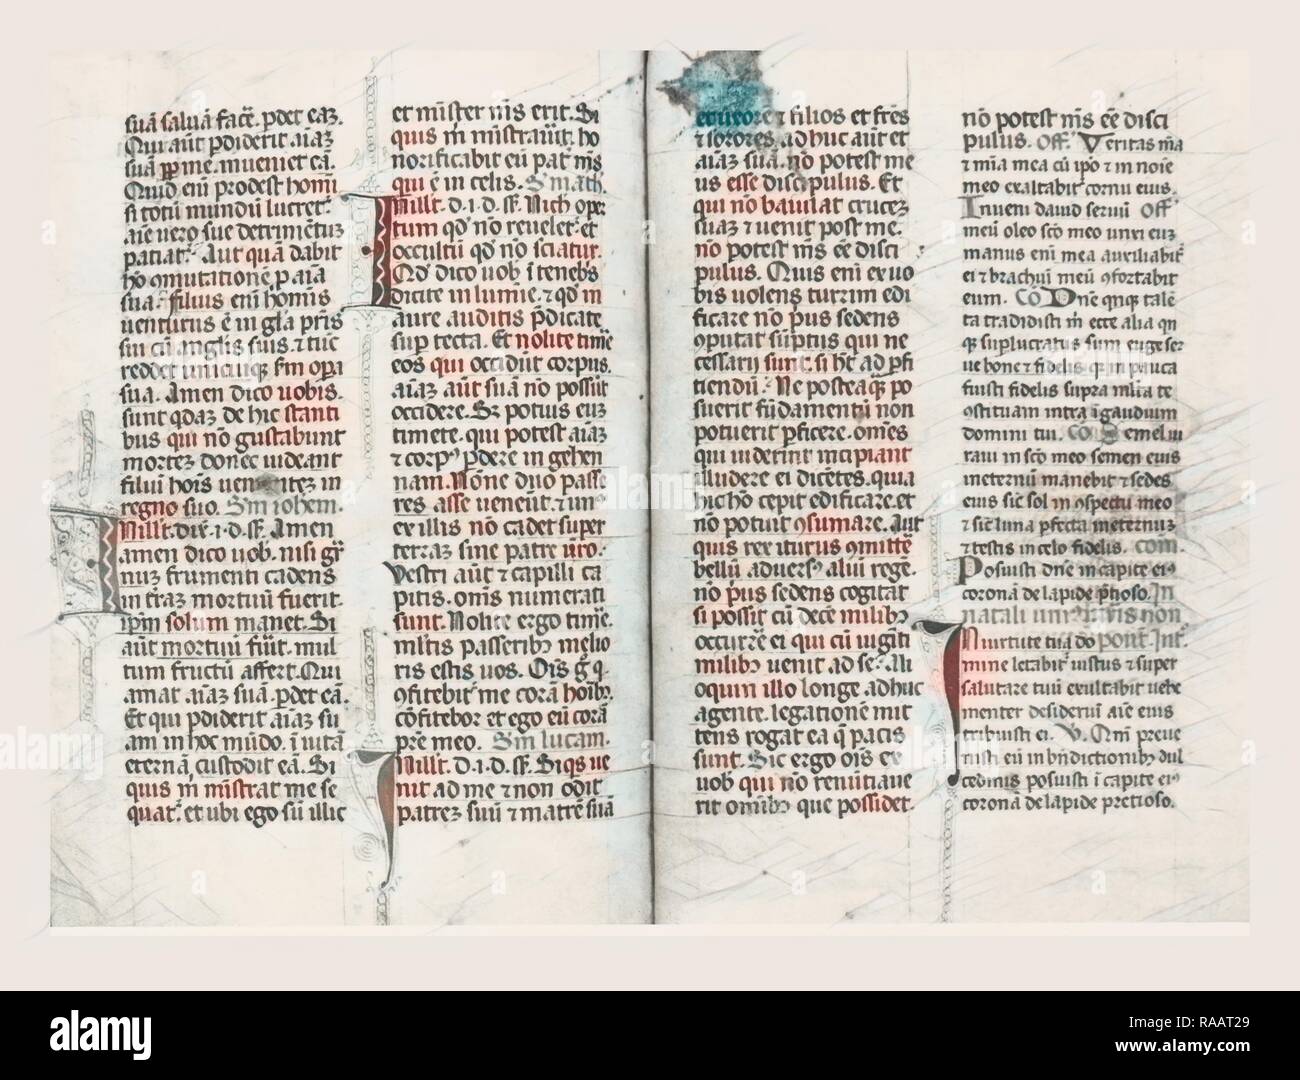 suā saluā facē. ꝑdet eaꝫ.
Qui aūt ꝑdiderit aīaꝫ
suā ꝓpt me. mueniet eā.
Quid enī prodest homī
si totū mundū lucret.
aīe vero sue detrimētuꝫ
patiat. Aut quā dabit
hō ꝯmutationē ꝓ aīa
sua. filius enī homīs
venturus ē in gla pris
sui cū anglis suis. ⁊ tūc
reddet unicuiqꝫ scdm opa
sua. Amen dico vobis.
sunt qdaꝫ de hic stanti
bus qui nō gustabunt
mortez donec videant
filiū hoīs venientez in
regno suo. Sm iohem.
In illt. dix. i. d. sf. Amen
amen dico vob. nisi gr
nuꝫ frumenti cadens
in traꝫ mortuū fuerit.
ipm solum manet. Si
aūt mortuū fuit. mul
tum fructū affert. Qui
amat aīaꝫ suā ꝑdet eā.
Et qui ꝑdiderit aīaꝫ su
am in hoc mūdo. ī vitā
eternā custodit eā. Si
quis m mīstrat me se
quat. et ubi ego sū illic
et mīster mīs erit. Si
quis m mīstrauit. ho
norificabit eū pat mīs
qui ē in celis. Sm math.
In illt. d. i. d. sf. Nich oper
tum qd nō reuelet. et
occultū qd nō sciatur.
Qd dico vob ī tenebs
dicite in lumīe. ⁊ qd in
aure auditis ꝑdicate
sup tecta. Et nolite timē
eos qui occidūt corpus.
aīaꝫ aūt suā nō possūt
occidere. Sꝫ potius euꝫ
timete. qui potest aīaꝫ
⁊ corpꝰ ꝑdere in gehen
nam. Nōne duo passe
res asse veneūt. ⁊ unꝰ
ex illis nō cadet super
terraꝫ sine patre vro.
Vestri aūt ⁊ capilli ca
pitis. omīs numerati
sunt. Nolite ergo timē.
mltis passeribꝫ melio
ris estis vos. Oīs g q
ꝯfitebit me corā hoībꝫ.
cōfitebor et ego eū corā
prē meo. Sm lucam.
In illt. d. i. d. sf. Si qs ve
nit ad me ⁊ non odit
patreꝫ suū ⁊ matrē suā
et uxorē ⁊ filios et frēs
⁊ sorores. adhuc aūt et
aīaꝫ suā. nō potest me
us esse discipulus. Et
qui nō baiulat cruceꝫ
suaꝫ ⁊ venit post me.
nō potest mīs eē disci
pulus. Quis enī ex vo
bis volens turrim edi
ficare nō pus sedens
ꝯputat sūptus qui ne
cessarij sunt. si ht ad pfi
tiendū. Ne posteaqꝫ po
suerit fūdamentū non
potuerit ꝑficere. omēs
qui viderīt incipiant
illudere ei dicētes. quia
hic hō cepit edificare. et
nō potuit ꝯsumare. Aut
quis rex iturus ꝯmittē
bellū adversꝰ aliū regē.
nō pus sedens cogitat
si possit cū decē milibꝫ
occurrē ei qui cū uigīti
milibꝫ venit ad se. Ali
oquin illo longe adhuc
agente. legationē mit
tens rogat ea q pacis
sunt. Sic ergo oīs ex
vob qui nō renūtiaue
rit omībꝫ que possidet.
nō potest mīs eē disci
pulus. Off. Veritas ma
⁊ mīa mea cū ipo ⁊ in noīe
meo exaltabit cornu eius.
Inveni david servū Off
meū oleo sco meo unxi euꝫ
manus enī mea auxiliabit
ei ⁊ brachiū meū ꝯfortabit
eum. Cō Dnē qnqꝫ talē
ta tradidisti m ecce alia qn
qꝫ suplucratus sum euge ser
ue bone ⁊ fidelis qꝫ in pauca
fuisti fidelis supra mlta te
ꝯstituam intra ī gaudium
domini tui. Cō Semel iu
raui in sco meo semen eius
meternū manebit ⁊ sedes
eius sic sol in ꝯspectu meo
⁊ sic luna pfecta meternuꝫ
⁊ testis in celo fidelis. Com.
Posuisti dne in capite eiꝰ
coronā de lapide ptioso. In
natali unius mris non
In virtute tua dō pont. Int.
mine letabit iustus ⁊ super
salutare tuū exultabit vehe
menter desideriū aīe eius
tribuisti ei. V. Qm preve
nisti eū in bndictionibꝫ dul
cedinis posuisti ī capite eiꝰ
coronā de lapide pretioso.
alamy
alamy stock photo
alamy
Image ID: RAAT29
www.alamy.com